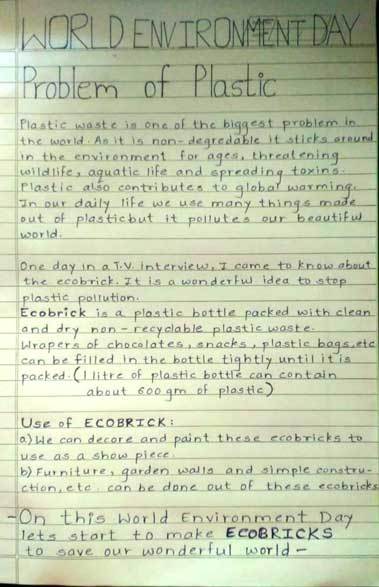 WORLD ENVIRONMENT DAY
Problem of Plastic
Plastic waste is one of the biggest problem in
the world. As it is non-degredable it sticks around
in the environment for ages, threatening
wildlife, aquatic life and spreading toxins.
Plastic also contributes to global warming.
In our daily life we use many things made
out of plastic but it pollutes our beautiful
world.
One day in a T.V. interview, I came to know about
the ecobrick. It is a wonderful idea to stop
plastic pollution.
Ecobrick is a plastic bottle packed with clean
and dry non-recyclable plastic waste.
Wrapers of chocolates, snacks, plastic bags, etc
can be filled in the bottle tightly until it is
packed. (1 litre of plastic bottle can contain
about 600 gm of plastic)
Use of ECOBRICK:
a) We can decore and paint these ecobricks to
use as a show piece.
b) Furniture, garden walls and simple constru-
ction, etc. can be done out of these ecobricks
-On this World Environment Day
lets start to make ECOBRICKS
to save our wonderful world-